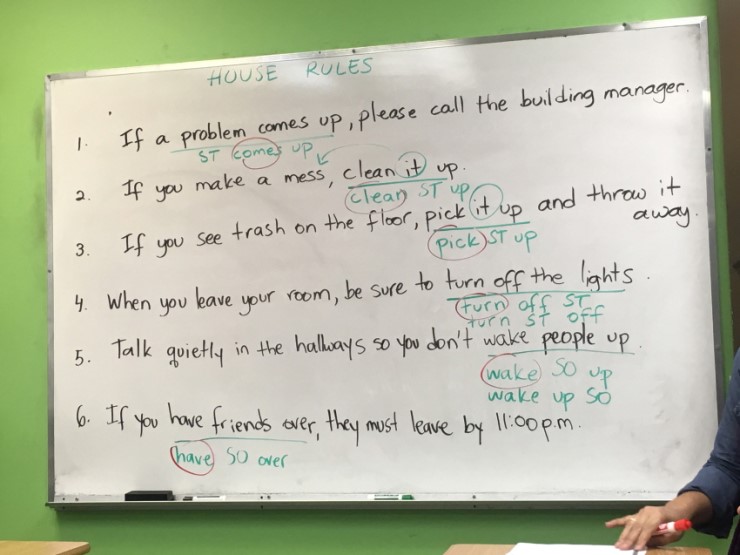 HOUSE RULES
1. If a problem comes up, please call the building manager.
ST comes up
2. If you make a mess, clean it up.
clean ST up
3. If you see trash on the floor, pick it up and throw it away.
pick ST up
4. When you leave your room, be sure to turn off the lights.
turn off ST
turn ST off
5. Talk quietly in the hallways so you don't wake people up.
wake SO up
wake up SO
6. If you have friends over, they must leave by 11:00 p.m.
have SO over